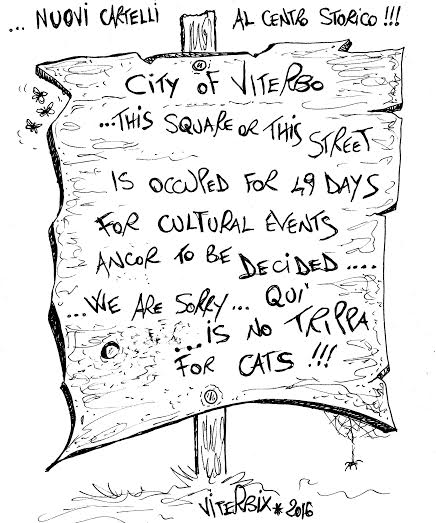 ... NUOVI CARTELLI AL CENTRO STORICO !!!
CITY OF VITERBO
...THIS SQUARE OR THIS STREET
IS OCCUPED FOR 49 DAYS
FOR CULTURAL EVENTS
ANCOR TO BE DECIDED ....
...WE ARE SORRY... QUI'
...IS NO TRIPPA
FOR CATS !!!
VITERBIX * 2016